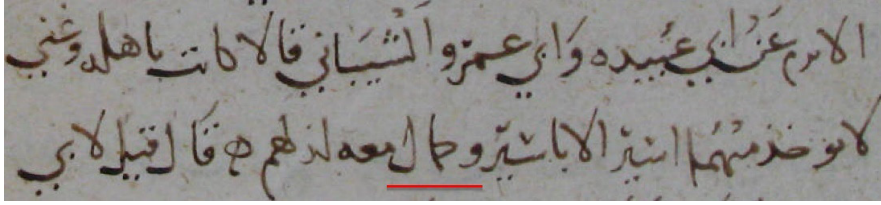 الاثرم عَن ابي عبُيده وَابي عمرو الشيبَاني قالا كانت باهله وغني
لا يوخذ منهُما اسَير الا باسَير وحمال معه لذلهم ه قال قيل لابي